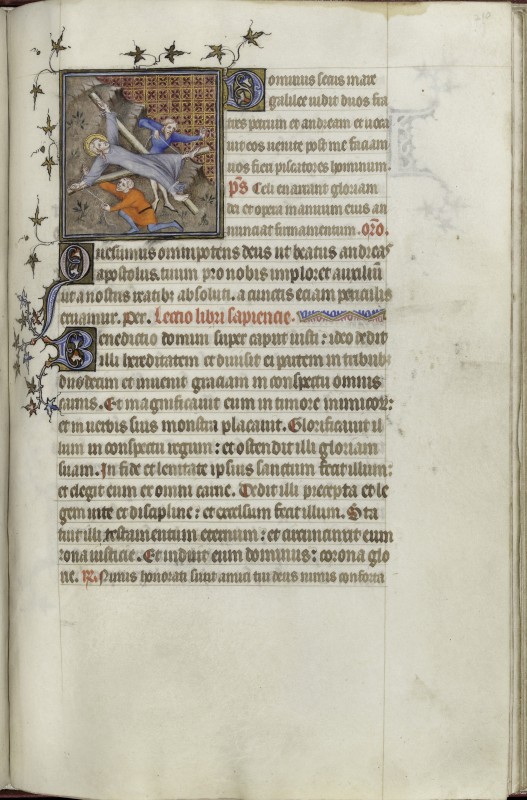 Dominus secus mare
galilee vidit duos fra
tres petrum et andream et voca
uit eos venite post me faciam
uos fieri piscatores hominum.
p̄s Celi enarrant gloriam
dei et opera manuum eius an
nunciat firmamentum. oro̅.
Quesumus omnipotens deus ut beatus andreas
apostolus. tuum pro nobis imploret auxiliū
ut a nostris reatibꝫ absoluti. a cunctis eciam periculis
eruamur. per. Lectio libri sapiencie.
Benedictio domini super caput iusti : ideo dedit
illi hereditatem et diuisit ei partem in tribubꝫ
duodecim et inuenit graciam in conspectu omnis
carnis. Et magnificauit eum in timore inimicoꝝ:
et in uerbis suis monstra placauit. Glorificauit il
lum in conspectu regum : et ostendit illi gloriam
suam. In fide et lenitate ipsius sanctum fecit illum:
et elegit eum ex omni carne. Dedit illi precepta et le
gem uite et discipline : et excelsum fecit illum. Sta
tuit illi testamentum eternum : et circumcinxit eum
zona iusticie. Et induit eum dominus : corona glo
rie. R̄. Nimis honorati sunt amici tui deus nimis conforta